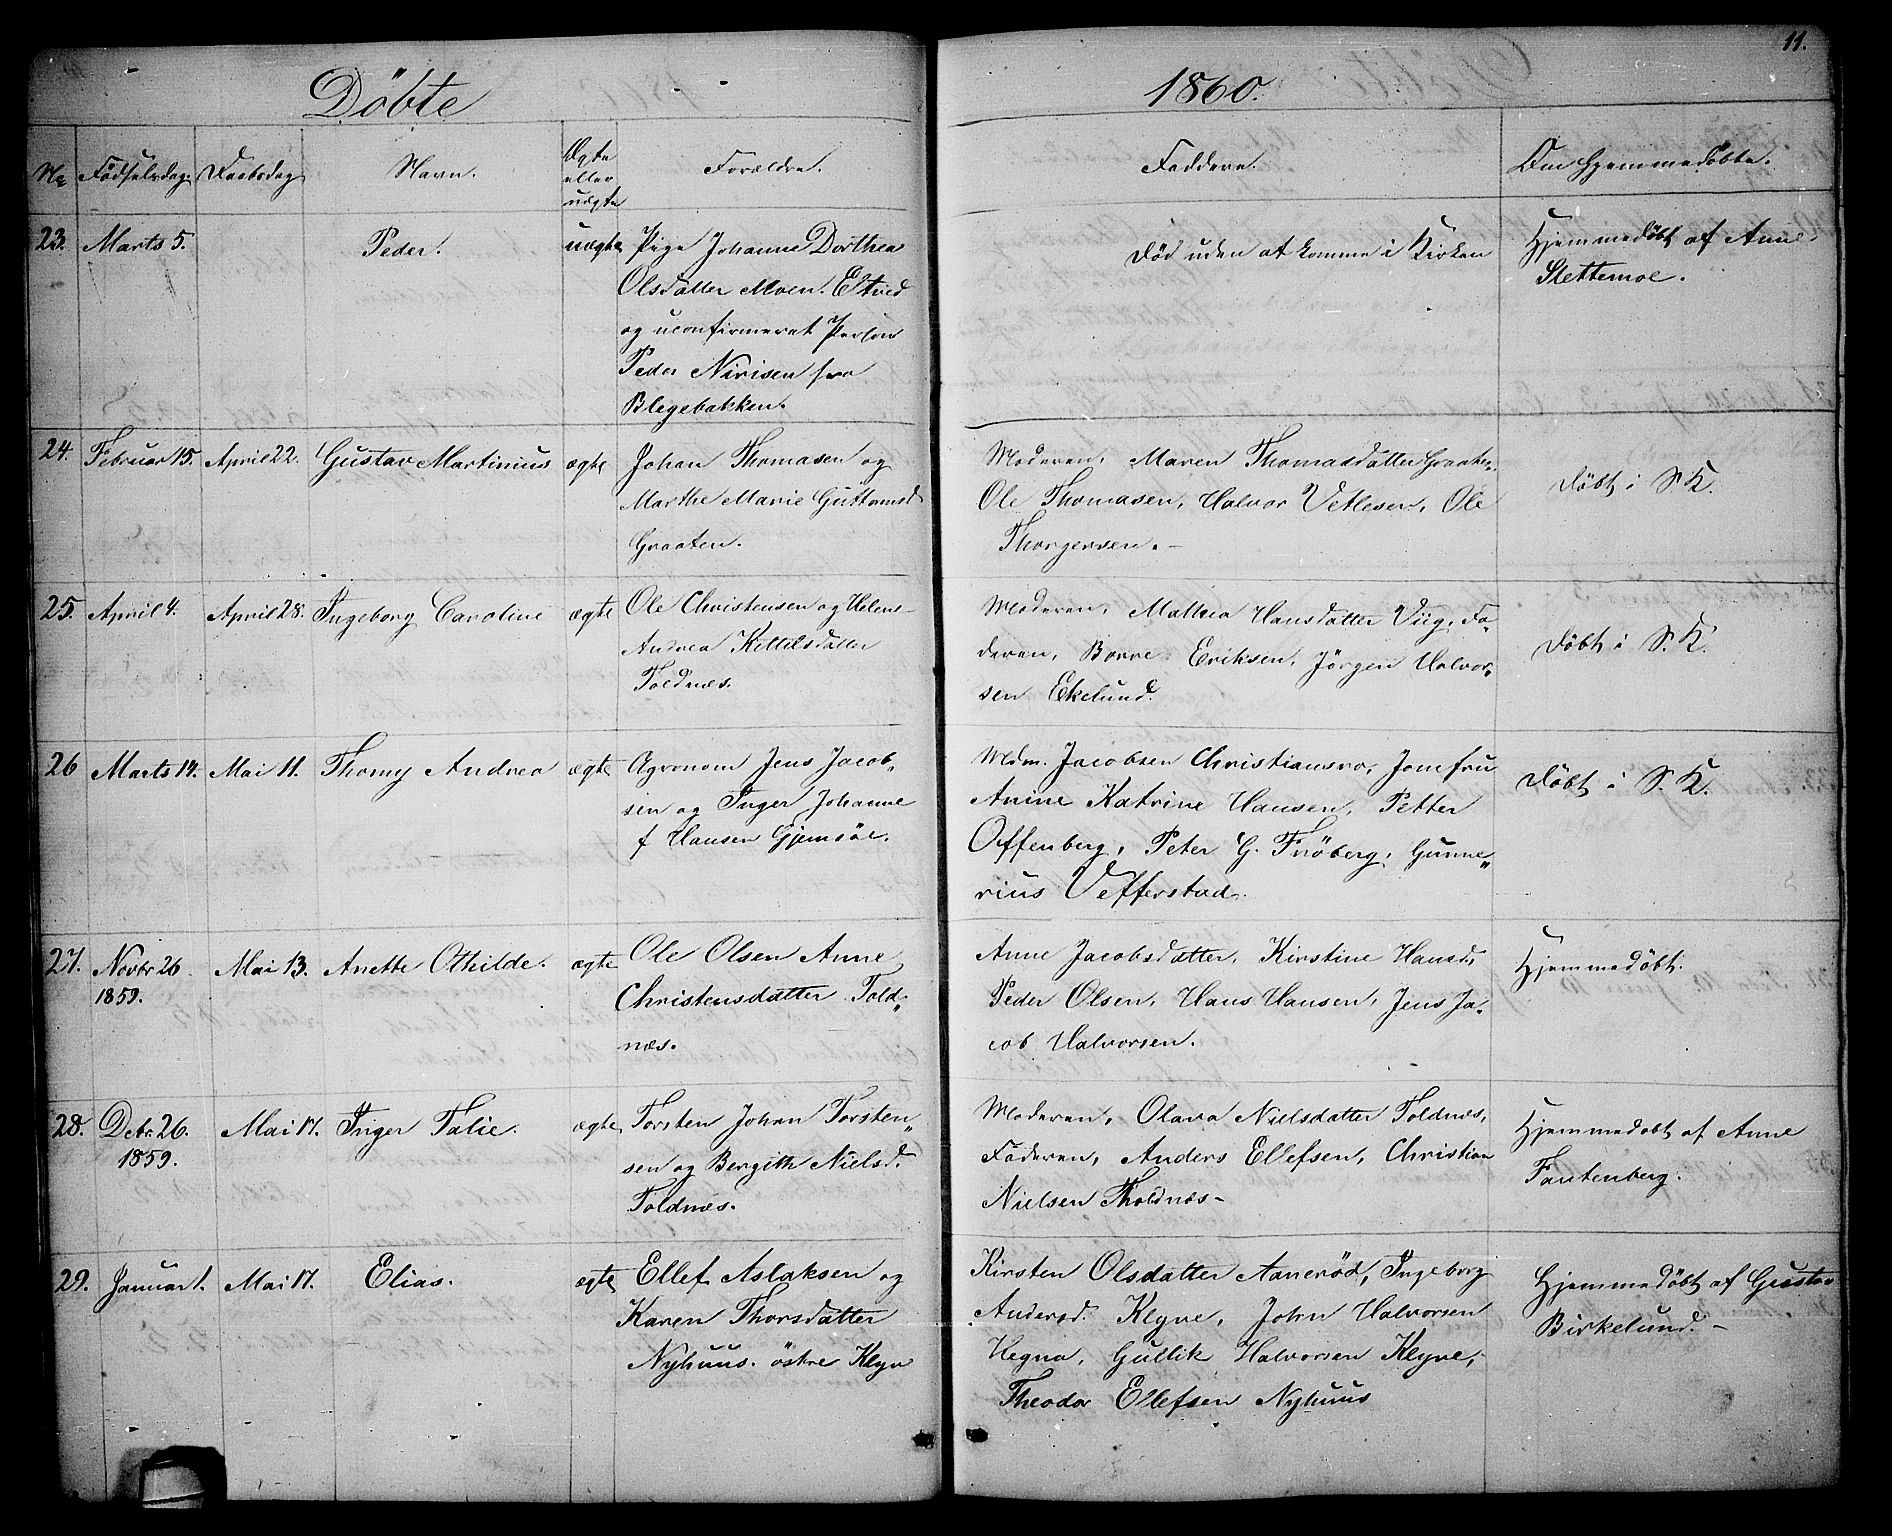 11.
Döbte 1860.
No Födselsdag. Daabsdag Navn. Ægte eller uægte Forældre. Faddere. Om Hjemmedöbte.
23. Marts 5. Peder. uægte Pige Johanne Dorthea Död uden at komme i Kirken Hjemmedöbt af Anne
Olsdatter Moen. Eltvid Slettemoe.
og uconfirmeret Person
Peder Nirisen fra
Blegebakken.
24. Februar 15. April 22. Gustav Martinius ægte Johan Thomasen og Moderen, Maren Thomasdatter Graaten, Döbt i S. K.
Marthe Marie Guttormsd. Ole Thomasen, Halvor Vetlesen, Ole
Graaten. Thorgersen.–
25. April 4. April 28. Ingeborg Caroline ægte Ole Christensen og Helene Moderen, Mathea Hansdatter Viig, Fa- Döbt i S. K.
Andrea Kittilsdatter deren, Borre Eriksen, Jörgen Halvor-
Toldnæs. sen Ekelund.
26 Marts 14. Mai 11. Thomy Andrea ægte Agronom Jens Jacob- Mdm. Jacobsen Christiansra, Jomfru Döbt i S. K.
sen og Inger Johanne Anine Katrine Hansen, Petter
f Hansen Gjemsöe. Offenberg, Peter G. Fröberg, Gunne-
rius Vefferstad.
27. Novbr 26 Mai 13. Anette Othilde. ægte Ole Olsen Anne Anne Jacobsdatter, Kirstine Hansd, Hjemmedöbt.
1859. Christensdatter Told- Peder Olsen, Hans Hansen, Jens Ja-
næs. cob Halvorsen.
28. Debr. 26. Mai 17. Inger Talie. ægte Torsten Johan Torsten- Moderen, Olava Nielsdatter Toldnæs, Hjemmedöbt af Anne
1859. sen og Bergith Nielsd. Faderen, Anders Ellefsen, Christian Fantenberg.
Toldnæs. Nielsen Tholdnæs–
29. Januar 1. Mai 17. Elias. ægte Ellef Aslaksen og Kirsten Olsdatter Aaneröd, Ingeborg Hjemmedöbt af Gustav
Karen Thorsdatter Andersd. Klyve, John Halvorsen Birkelund.–
Nyhuus. östre Klyve Hegna, Gullik Halvorsen Klyve,
Theodor Ellefsen Nyhuus